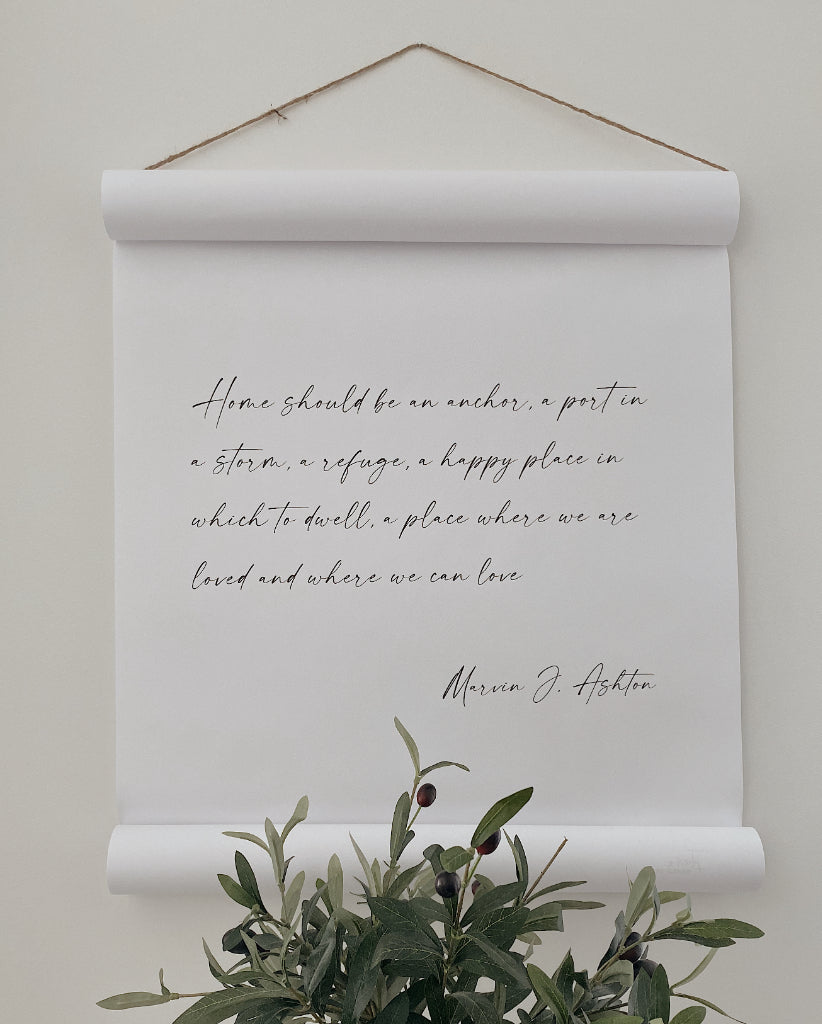 Home should be an anchor, a port in
a storm, a refuge, a happy place in
which to dwell, a place where we are
loved and where we can love
Marvin J. Ashton